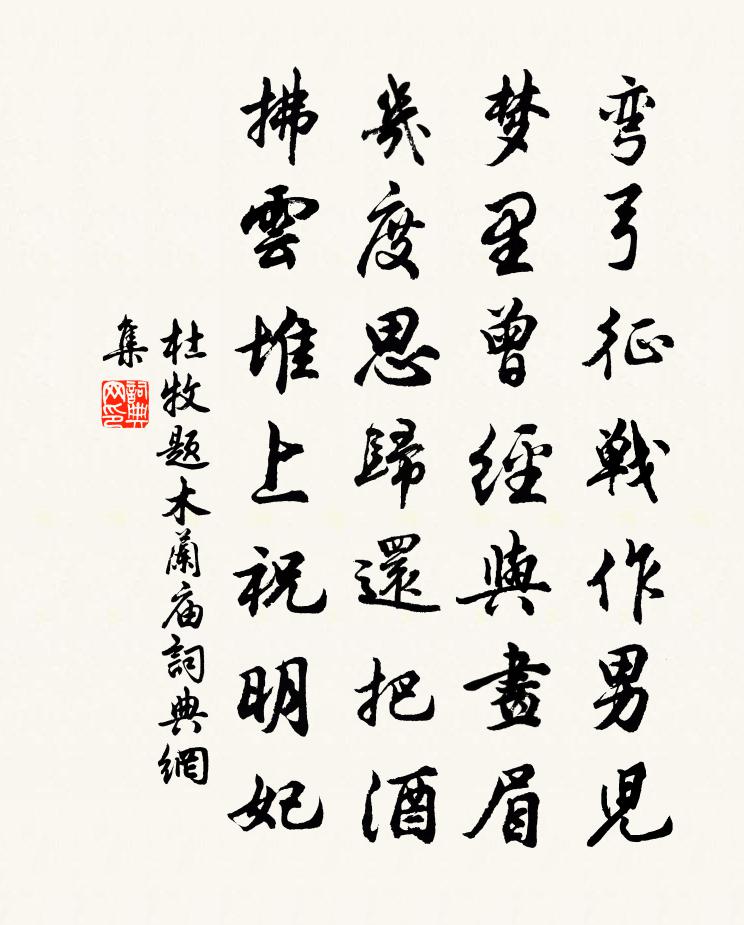 弯弓征战作男児
梦里曾經與畫眉
幾度思歸還把酒
拂雲堆上祝明妃
杜牧题木蘭庙詞典網
集
詞典
网印